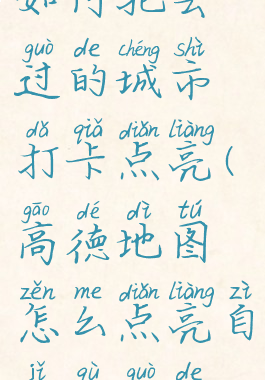 如何把去
guò de chéng shì
过的城市
dǎ qiǎ diǎn liàng
打卡点亮(
gāo dé dì tú
高德地图
zěn me diǎn liàng zì
怎么点亮自
jǐ qù guò de